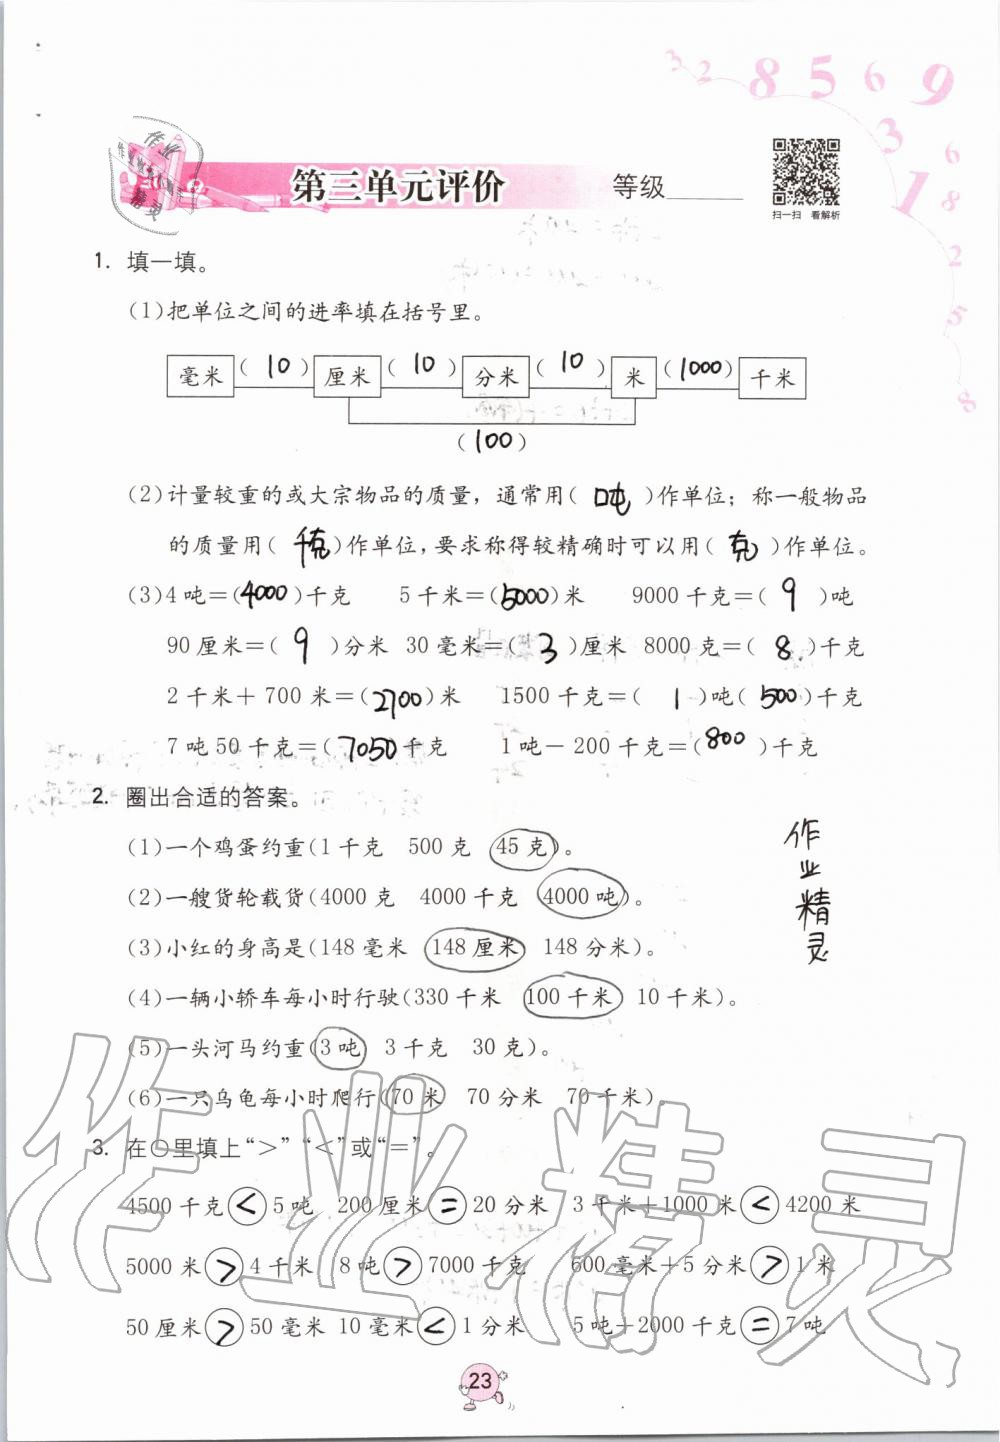 3 2 8 5 6 9
3
1
6
8
2
5
8
作业精灵
第三单元评价 等级______
扫一扫 看解析
1. 填一填。
(1)把单位之间的进率填在括号里。
毫米 (10) 厘米 (10) 分米 (10) 米 (1000) 千米
(100)
(2)计量较重的或大宗物品的质量，通常用( 吨 )作单位；称一般物品
的质量用( 千克 )作单位，要求称得较精确时可以用( 克 )作单位。
(3)4吨=(4000)千克 5千米=(5000)米 9000千克=( 9 )吨
90厘米=( 9 )分米 30毫米=( 3 )厘米 8000克=( 8 )千克
2千米+700米=(2700)米 1500千克=( 1 )吨(500)千克
7吨50千克=(7050)千克 1吨-200千克=(800)千克
2. 圈出合适的答案。
(1)一个鸡蛋约重(1千克 500克 45克)。
(2)一艘货轮载货(4000克 4000千克 4000吨)。
(3)小红的身高是(148毫米 148厘米 148分米)。
(4)一辆小轿车每小时行驶(330千米 100千米 10千米)。
(5)一头河马约重(3吨 3千克 30克)。
(6)一只乌龟每小时爬行(70米 70分米 70千米)。
作业精灵
3. 在○里填上“>”“<”或“=”。
4500千克<5吨 200厘米=20分米 3千米+1000米<4200米
5000米>4千米 8吨>7000千克 600毫米+5分米>1米
50厘米>50毫米 10毫米<1分米 5吨+2000千克=7吨
作业精灵
23